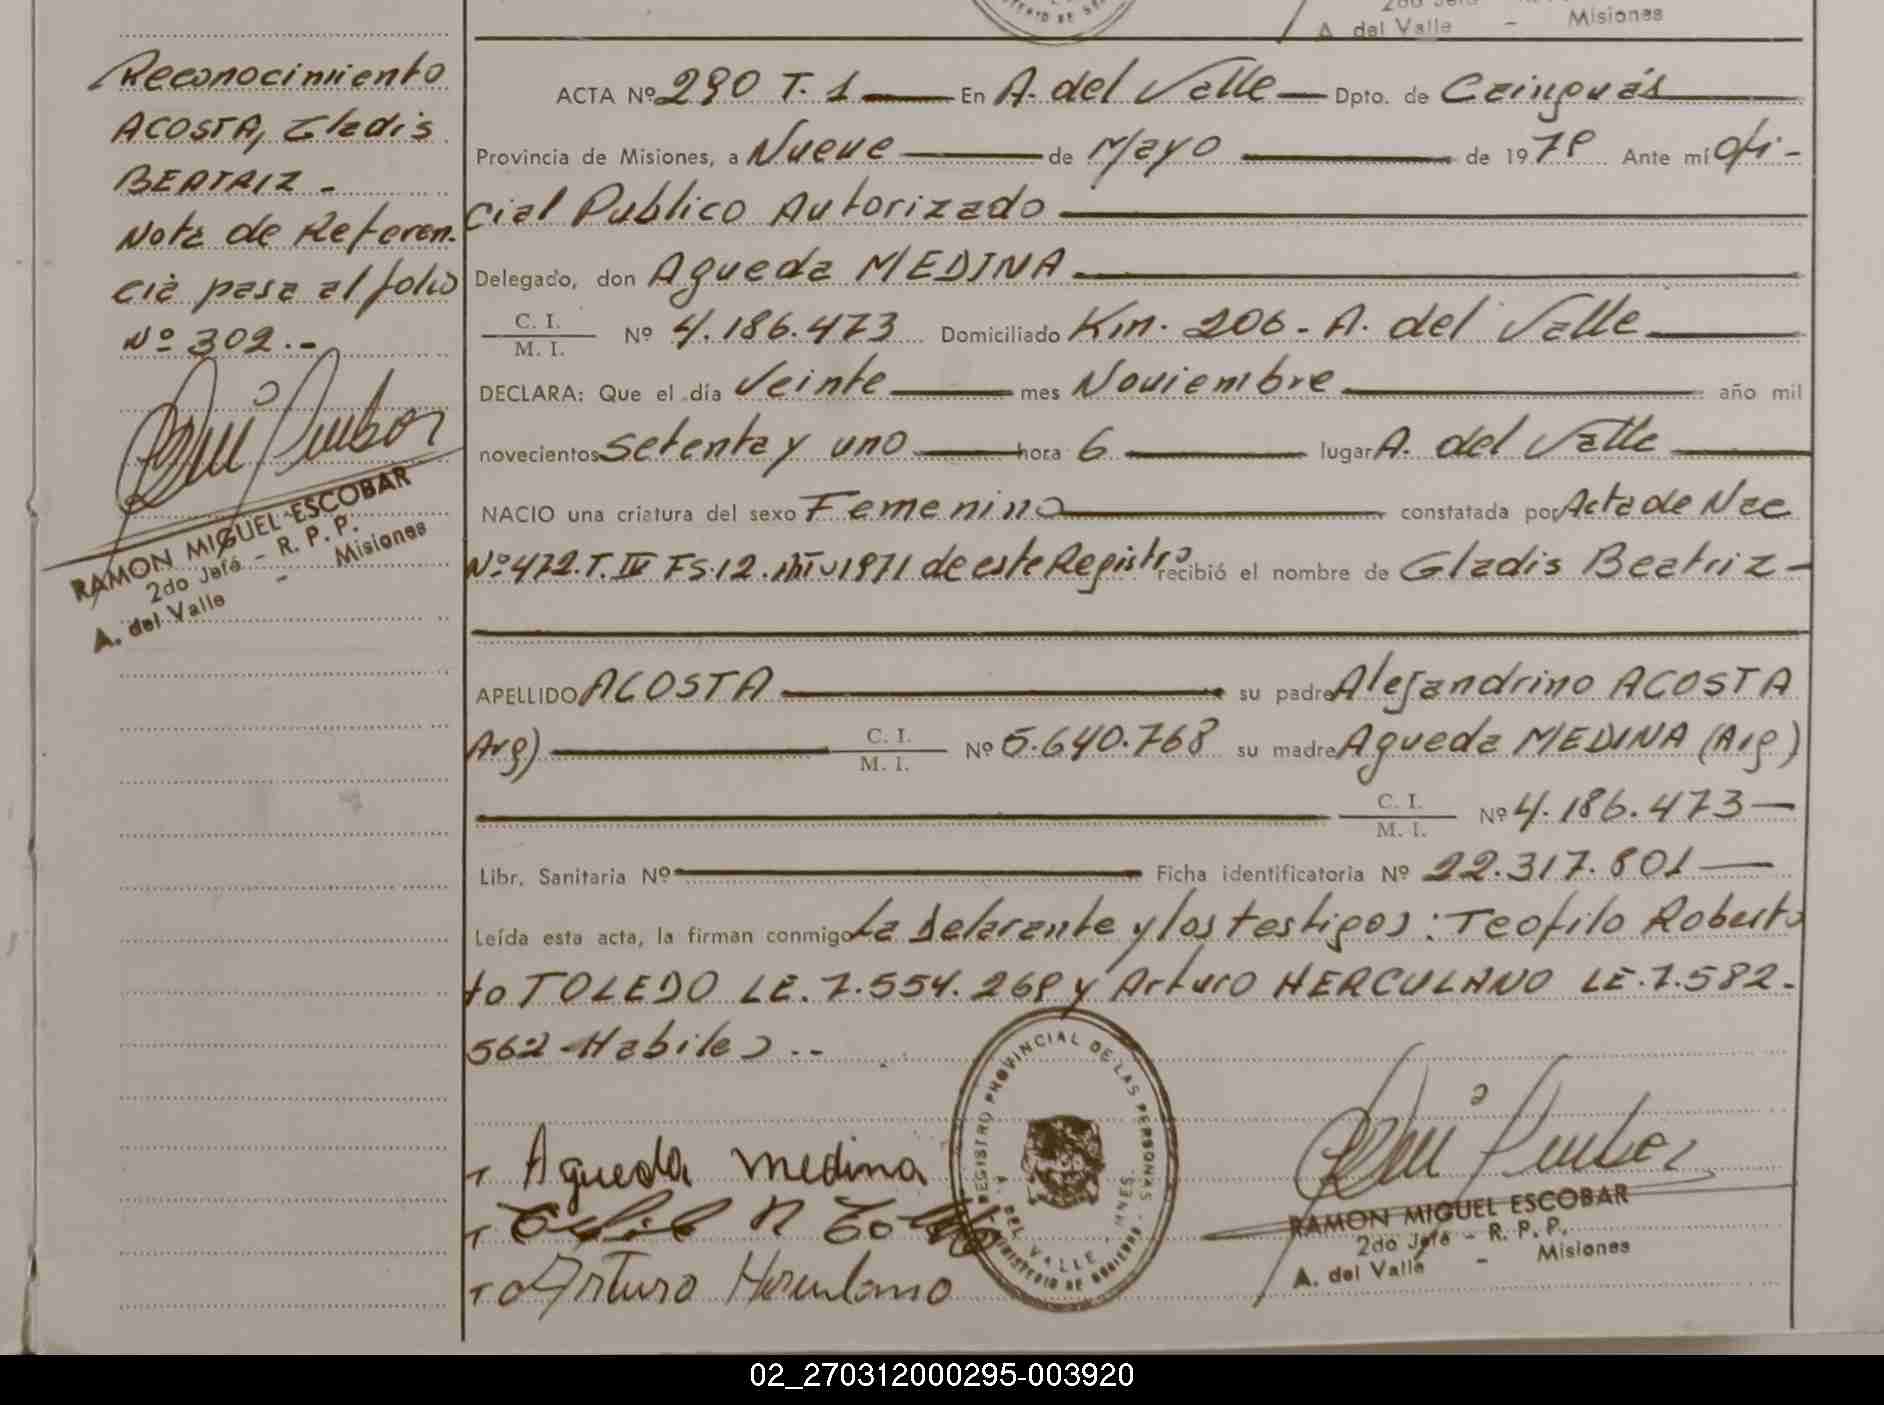 2do Jefe
A. del Valle - Misiones
Reconocimiento
ACOSTA, Gladis
BEATRIZ -
Nota de Referen-
cia pasa al folio
Nº 302.-
RAMON MIGUEL ESCOBAR
2do Jefe - R. P. P.
A. del Valle - Misiones
ACTA Nº 290 T. 1 En A. del Valle Dpto. de Cainguás
Provincia de Misiones, a Nueve de Mayo de 1978 Ante mí ofi-
cial Publico Autorizado
Delegado, don Agueda MEDINA
C. I.
M. I. Nº 4.186.473 Domiciliado Km. 206 - A. del Valle
DECLARA: Que el día Veinte mes Noviembre año mil
novecientos setenta y uno hora 6 lugar A. del Valle
NACIO una criatura del sexo Femenino constatada por Acta de Nac
Nº 472. T. IV Fs. 12. 1971 de este Registro recibió el nombre de Gladis Beatriz -
APELLIDO ACOSTA su padre Alejandrino ACOSTA
Arg) C. I.
M. I. Nº 5.640.768 su madre Agueda MEDINA (Arg)
C. I.
M. I. Nº 4.186.473
Libr. Sanitaria Nº Ficha identificatoria Nº 22.317.801
Leída esta acta, la firman conmigo La Delarante y los testigos: Teofilo Roberto
to TOLEDO LE. 7.554.268 y Arturo HERCULANO LE. 7.582.
562 - Habiles.--
Agueda Medina
Arturo Herculano
REGISTRO PROVINCIAL DE LAS PERSONAS
A. DEL VALLE - MNES.
MINISTERIO DE GOBIERNO
RAMON MIGUEL ESCOBAR
2do Jefe - R. P. P.
A. del Valle - Misiones
02_270312000295-003920